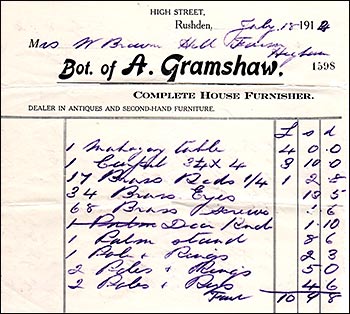 HIGH STREET,
Rushden, July 18 1912
Mrs W Brown Hill Farm
Higham
Bot. of A. Gramshaw. 1598
COMPLETE HOUSE FURNISHER.
DEALER IN ANTIQUES AND SECOND-HAND FURNITURE.
£ s d
1 Mahogany table 4 0 0
1 Carpet 3¾ x 4 3 10 0
17 Brass Rods 1/4 1 2 8
34 Brass Eyes
68 Brass Screws 6
1 Door Rod 1 10
1 Palm stand 8 6
1 Pole & Rings 2 3
2 Poles & Rings 5 0
2 Poles & 4 6
10 9 8